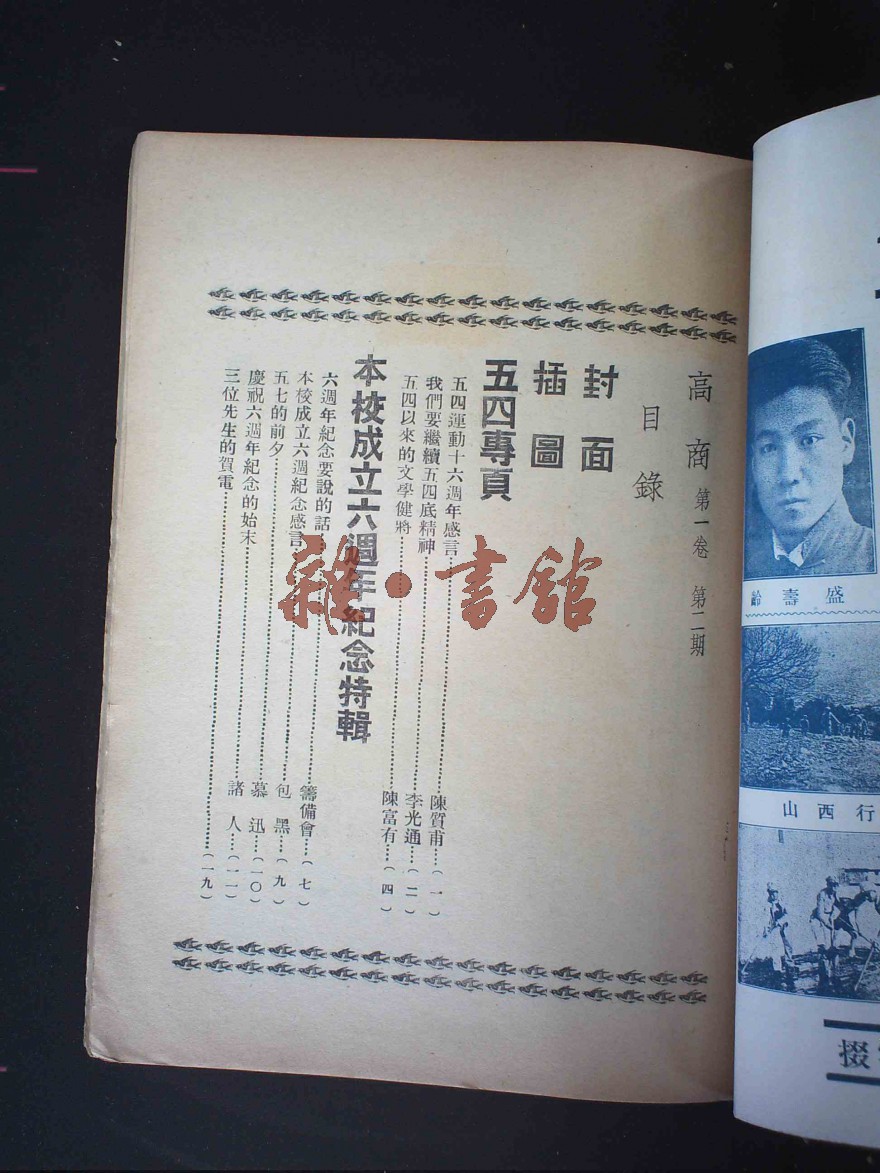 高商 第一卷 第二期
目錄
封面
插圖
五四專頁
五四運動十六週年感言……陳質甫……(一)
我們要繼續五四底精神……李光通……(二)
五四以來的文學健將……陳富有……(四)
本校成立六週年紀念特輯
六週年紀念要說的話……籌備會……(七)
本校成立六週紀念感言……包黑……(九)
五七的前夕……慕迅……(一〇)
慶祝六週年紀念的始末……諸人……(一一)
三位先生的賀電……(一九)
雜·書館
盛壽齡
行西山
掇